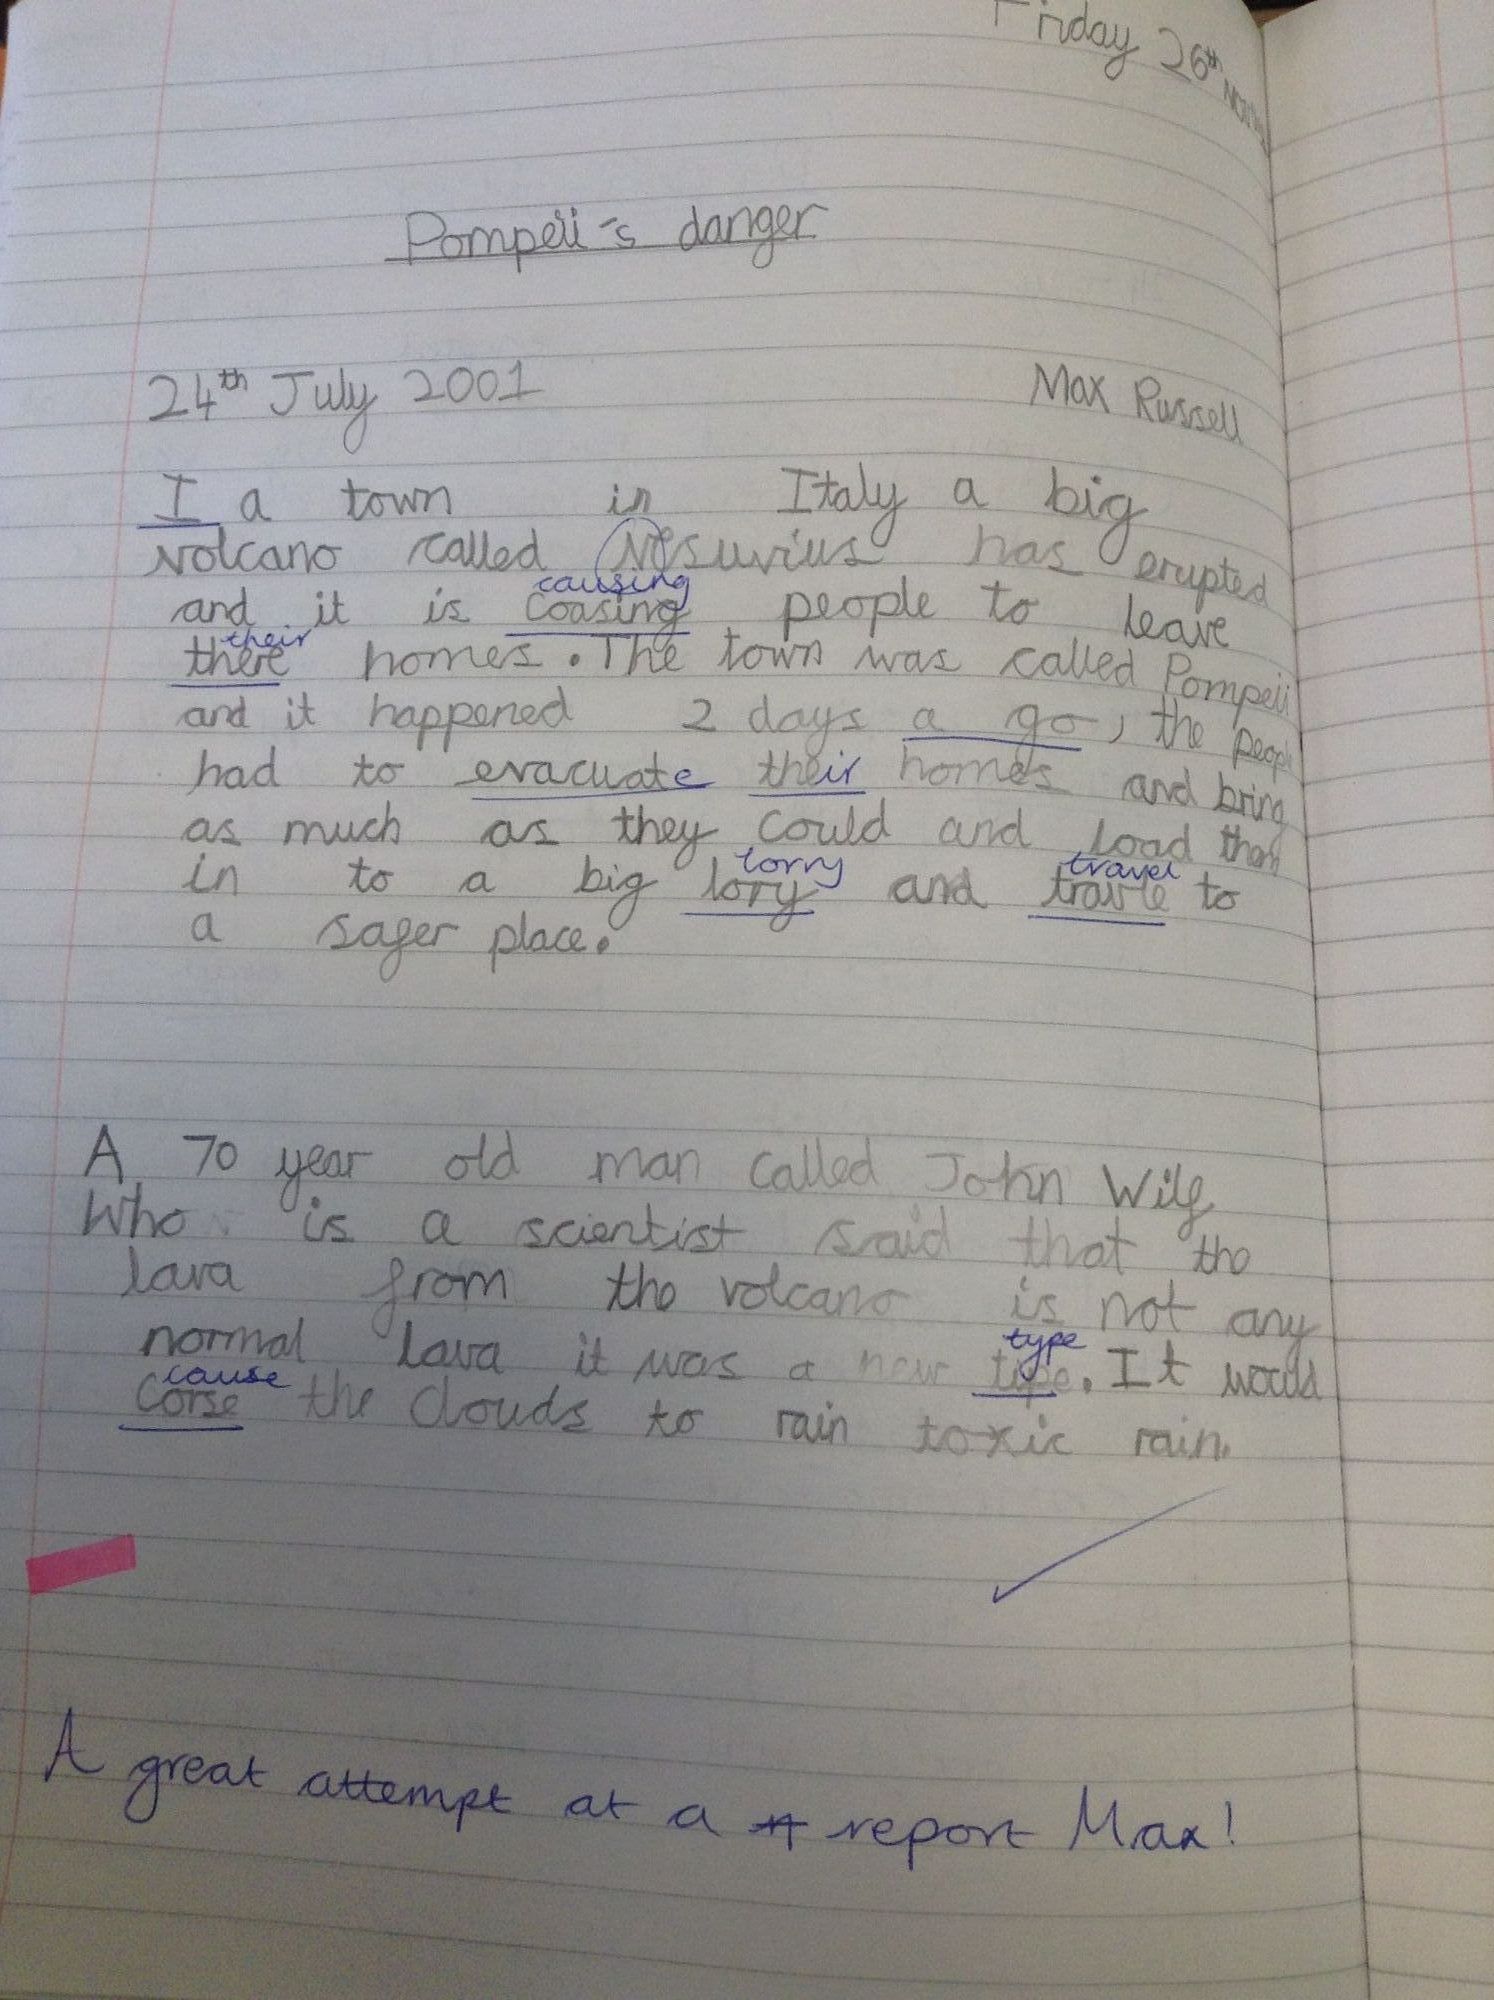 Friday 26th
Pompeii's danger
24th July 2001 Max Russell
I a town in Italy a big
volcano called Vesuvius has erupted
causing
and it is coasing people to leave
their
there homes. The town was called Pompeii
and it happened 2 days a go, the people
had to evacuate their homes and bring
as much as they could and load them
lorry travel
in to a big lory and travle to
a safer place.
A 70 year old man called John Wilf
Who is a scientist said that the
lava from the volcano is not any
type
normal lava it was a new tipe. It would
cause
corse the clouds to rain toxic rain.
A great attempt at a report Max!